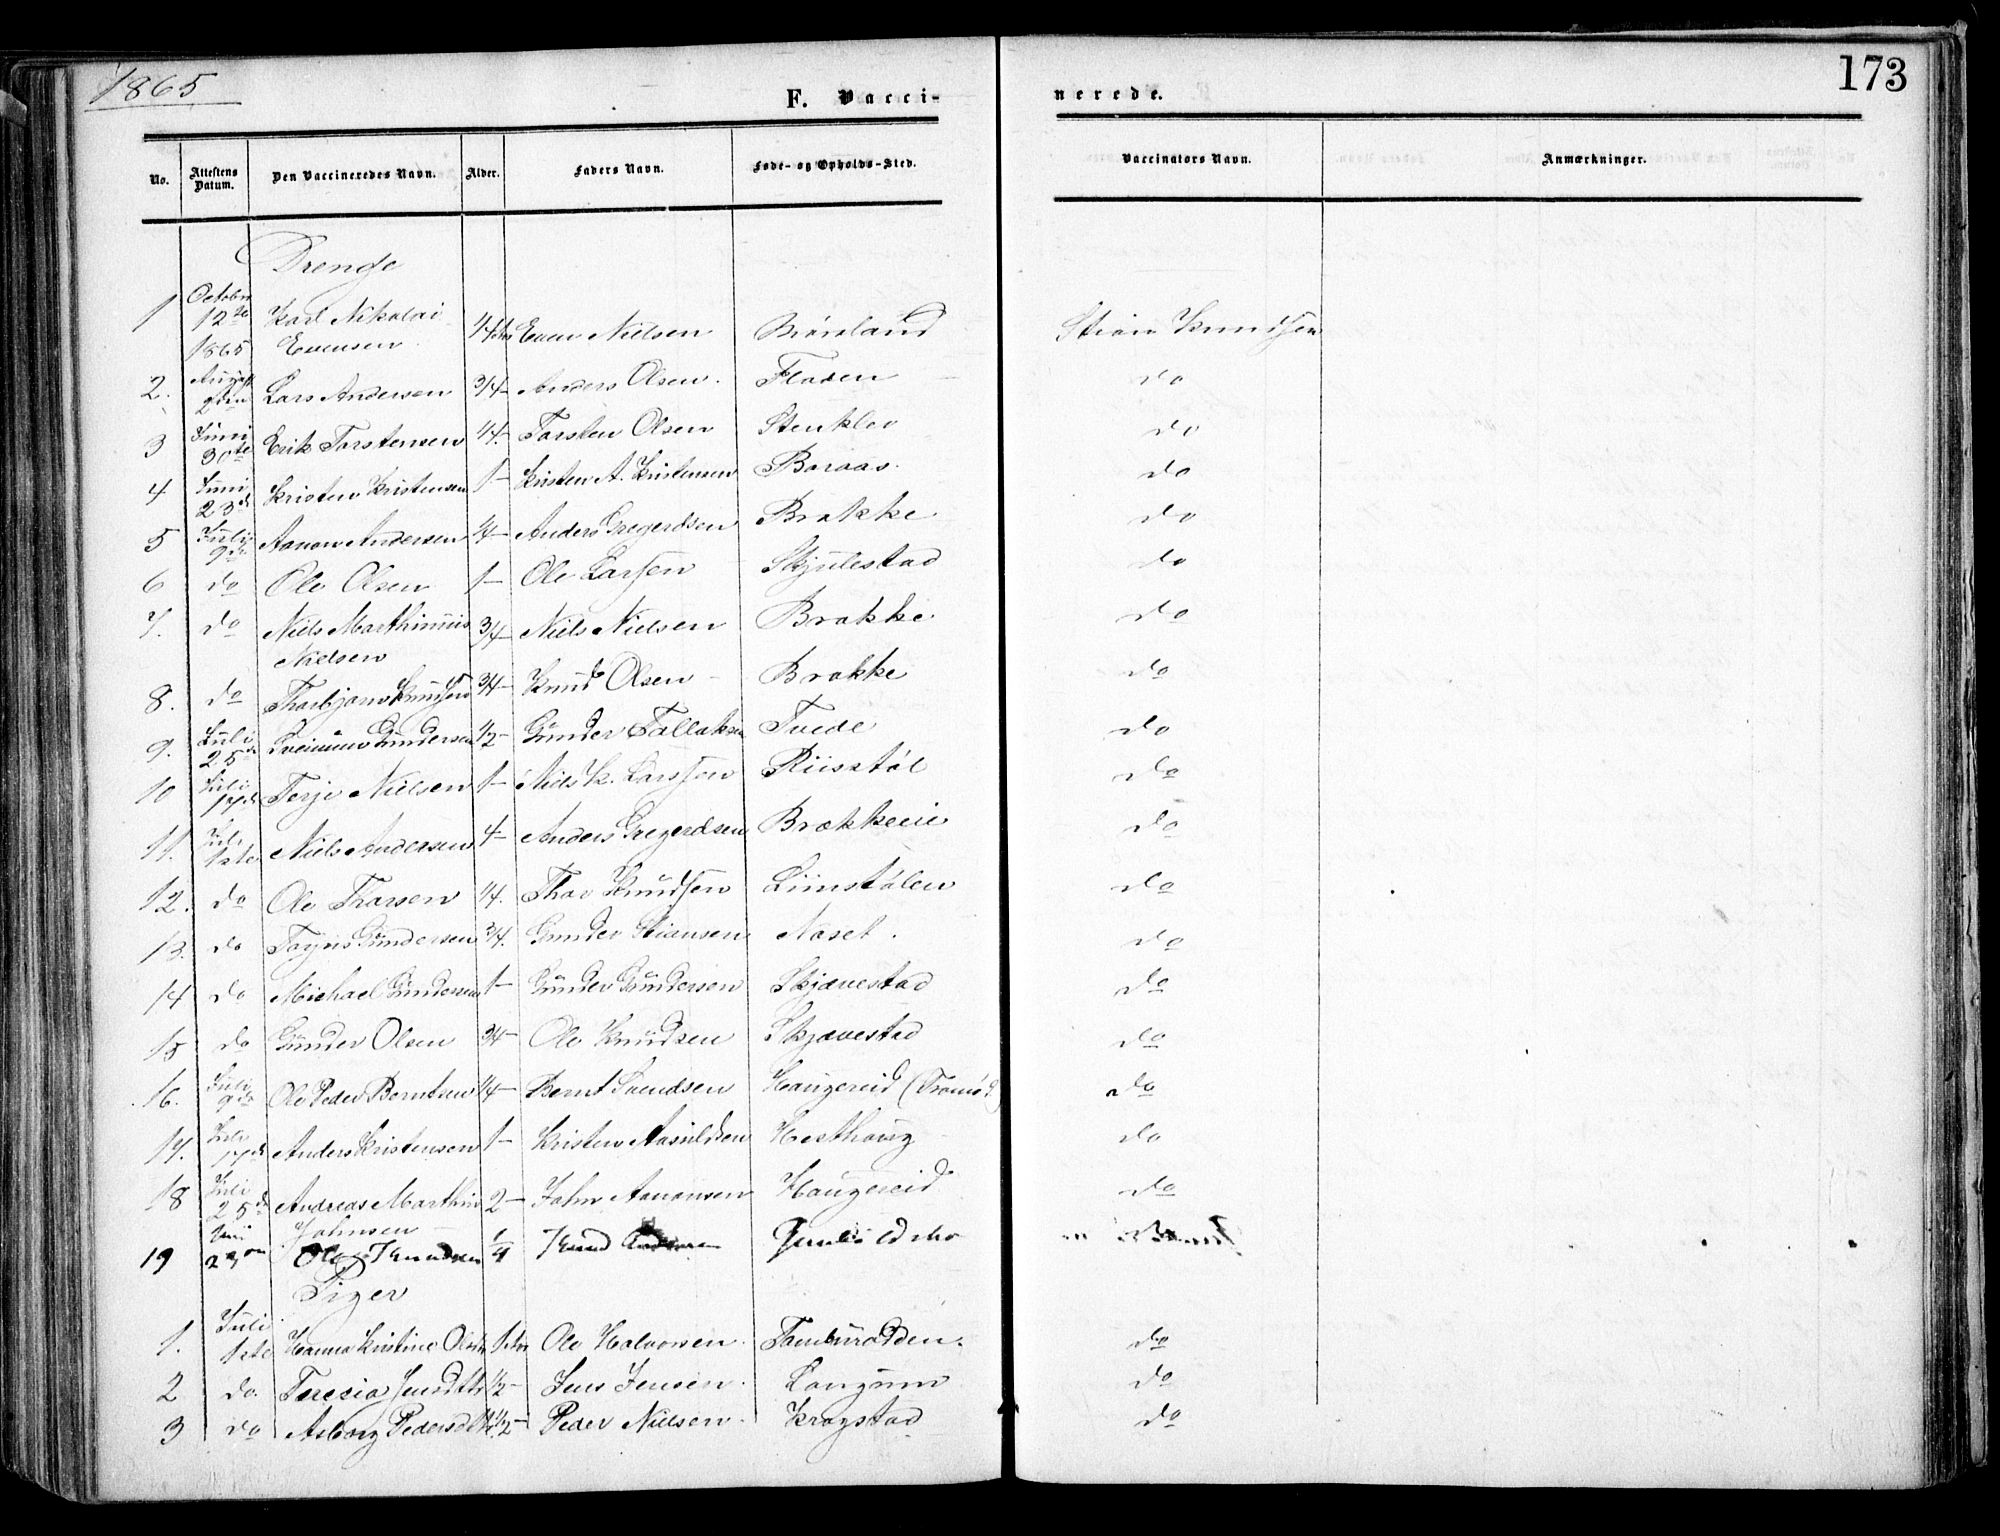 1865
173
F. Vacci-
nerede.
No. Attestens Datum. Den Vaccineredes Navn. Alder. Faders Navn. Føde- og Opholds-Sted. Vaccinators Navn. Anmærkninger.
Drenge
1 Octobr 12te 1865 Karl Nikolai Evensen 1/4 Even Nielsen Stian Knudsen
2. August 2den Lars Andersen 3/4 – Anders Olsen. Fladen do
3 Juni 30te Erik Torstensen 1/4 – Torsten Olsen Stenklev do
4 Juni 23d Kristen Kristensen 1 – Kristen A. Kristensen Baraas. do
5 Juli 9de Aanon Andersen 4 – Anders Gregerdsen Brække do
6 do Ole Olsen 1 – Ole Larsen Skjulestad do
7. do Niels Marthinius Nielsen 3/4 – Niels Nielsen Brække do
8. do Thorbjørn Knudsen 3/4 – Knud Olsen – Brække do
9. Juli 25de Gundersen 1/2 – Günder Tallaksen Tvede do
10 Juli 17de Terje Nielsen 1 – Niels K. Larssen Riisstøl do
11. Juli 1ste Niels Andersen 4 – Anders Gregerdsen Brækkeeie do
12. do Ole Thorsen 1/4. Thor Knudsen Liinstølen do
13. do Gündersen 3/4. Gunder Stiansen Naset. do
14 do Michael Gündersen 1 – Günder Gündersen Skjævestad do
15 do Günder Olsen 3/4 – Ole Knüdsen Skjævestad do
16. Juli 9de Ole Peder Berntsen 1/4 – Bernt Svendsen Haugereid (Tromø) do
17. Juli 17de Anders Kristensen 1 – Kristen Aasuldsen Hesthaug do
18 Juli 25de Andreas Marthin Johnsen 2 – John Aanonsen Haugereid do
19 Juni 23 Ole Knudsen 1/4 Knud
Piger
1. Juli 1ste Hanna Kristine Olsdtr 1 Ole Halvorsen. do
2 do. Teresia Jensdtr 1/2 – Jens Jensen. Langum do
3 do Asborg Pedersdtr 1/2 – Peder Nielsen. Kragstad do